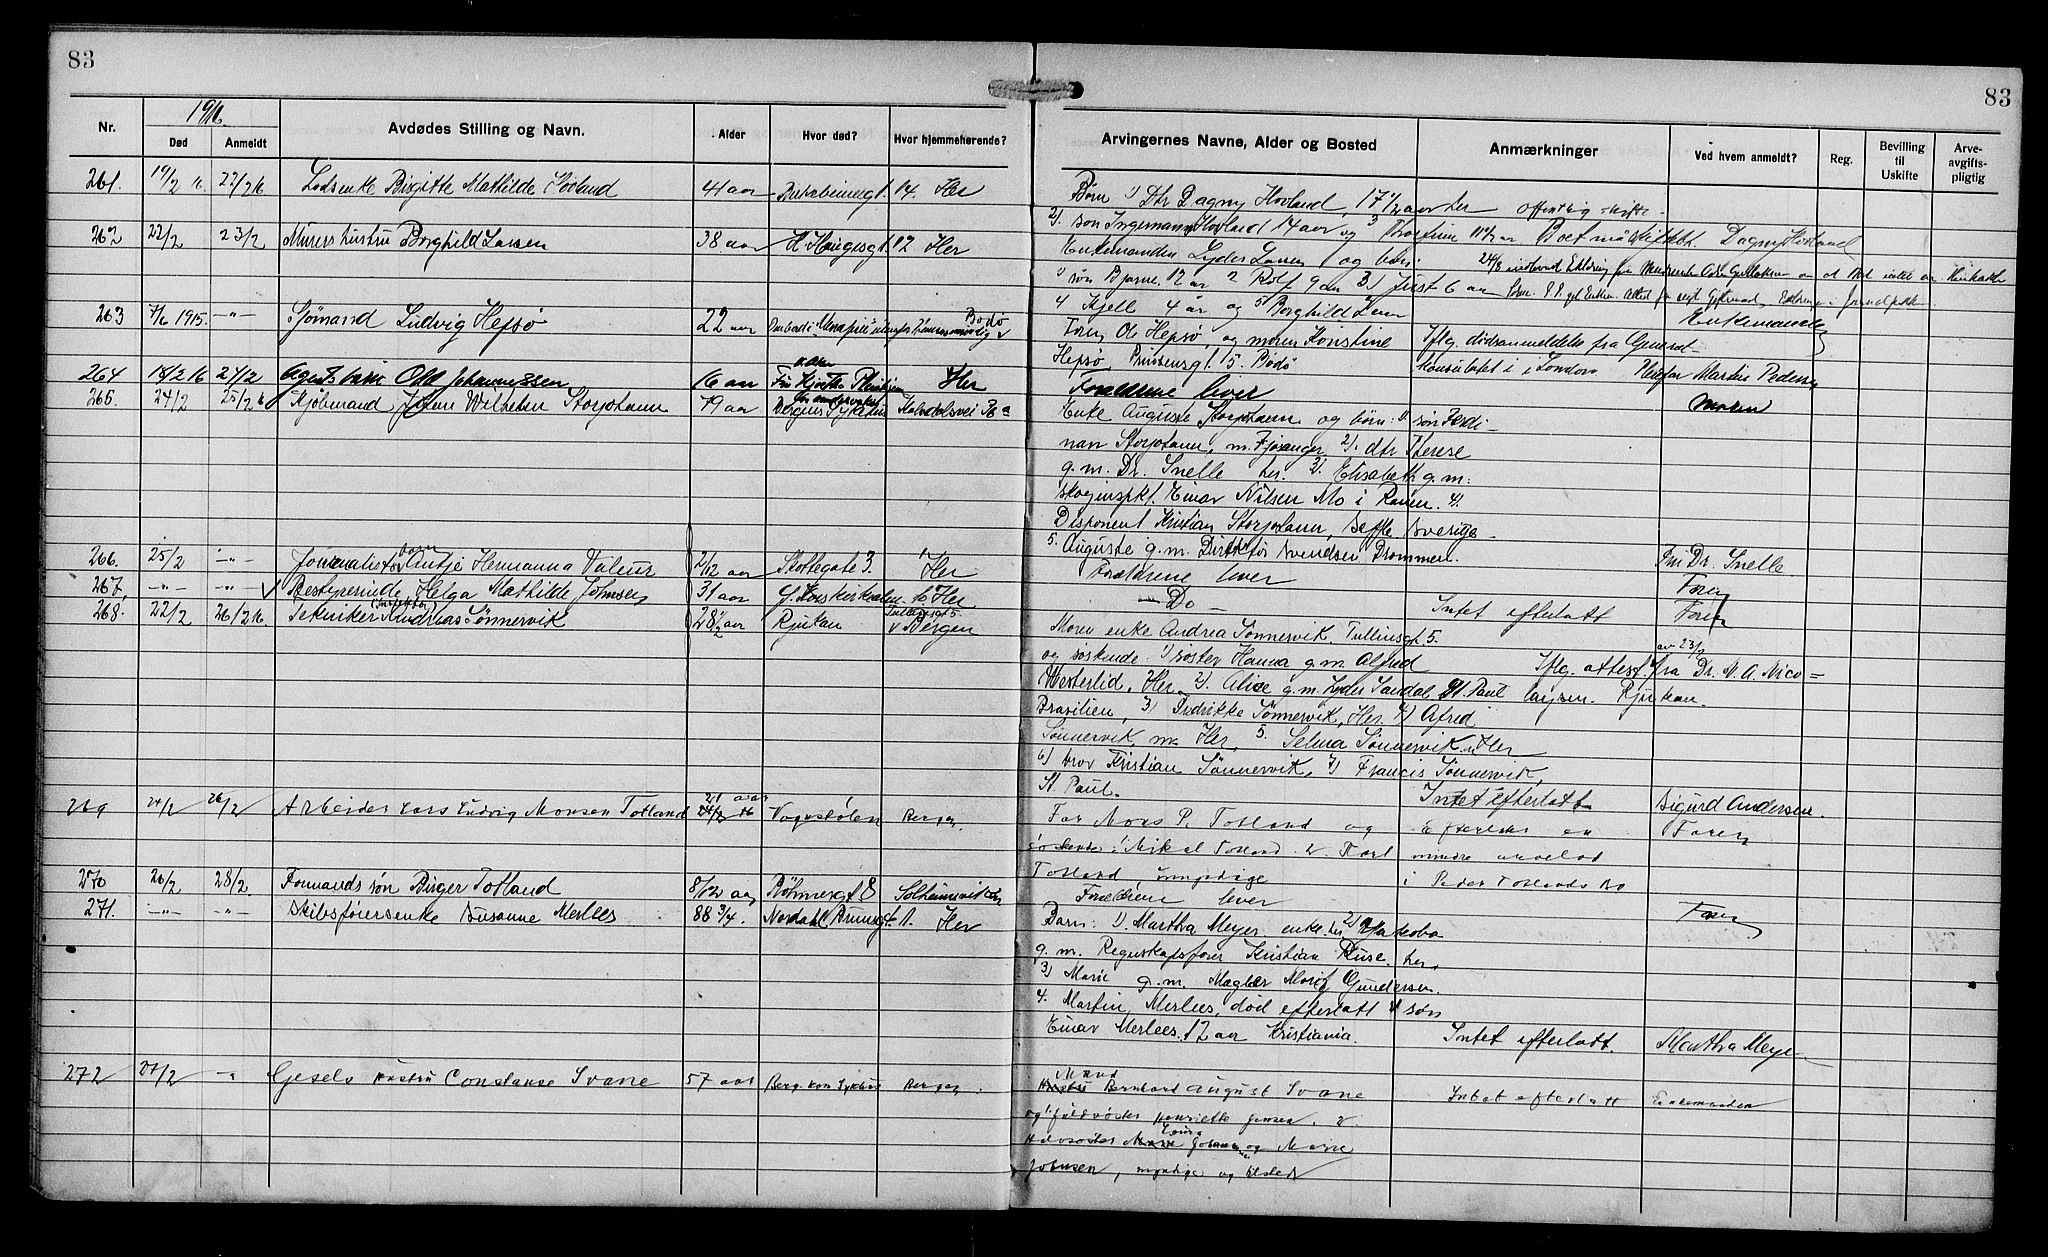 83
83
1916.
Nr.
Død
Anmeldt
Avdødes Stilling og Navn.
Alder
Hvor død?
Hvor hjemmehørende?
Arvingernes Navne, Alder og Bosted
Anmærkninger
Ved hvem anmeldt?
Reg.
Bevilling til Uskifte
Arve-avgifts-pligtig
261. 19/2 16 22/2 16 Losenke Birgitte Mathilde Hovland 41 aar 14. Her
Børn 1) Dtr Dagny Hovland, 17 1/2 aar her offentlig skifte.
2). søn Ingemann Hovland 14 aar og 3 11 1/2 aar Boet Dagny Hovland
262 22/2 23/2 Murers hustru Borghild Larsen 38 aar H Haugesgt. 12 Her
Enkemanden Lyder Larsen og børn:
1) søn Bjarne, 12 ar 2 Rolf 9 aar 3) Just 6 aar
4 Kjell 4 år og 5 Borghild 1 aar Enkemanden
263 7/6 1915. -"- Sjømand Ludvig Hepsø 22 aar Bodø
Faren Ole Hepsø, og moren Kristine Iflg. dødsanmeldelse fra General-
Hepsø Prinsensgt. 15. Bodø Konsulatet i London Martin Pedersen
264 18/2 16 24/2 Agents barn Odd Johannessen 16 aar Her
Forældrene lever Moren
265. 24/2 25/2 16 Kjøbmand Johan Wilhelm Storjohann 79 aar Bergens Sykehus Kalvedalsvei
Enke Auguste Storjohann og børn: 1). søn Ferdi-
nan Storjohann, m. Fjøsanger 2). dtr Therese
g.m. Dr. Snelle her. 3). Elisabeth g.m.
skoginspkt. Einar Nilsen Mo i Ranen. 4).
Disponent Kristian Storjohann, Seffle Sverige
5. Auguste g.m. Direktør Svendsen Drammen. Fru Dr. Snelle
266. 25/2 -"- Journalist barn Antje Hermanna Valeur 7/12 aar Stoltegate 3. Her
Forældrene lever Faren
267, -"- -"- Bestyrerinde, Helga Mathilde Johnsen 31 aar Her
- Do - Intet efterlatt Faren
268. 22/2 26/2 16. Tekniker (Inspektør) Andreas Sønnervik 28 1/2 aar Rjukan Tullinsgt 5 Bergen
Moren enke Andrea Sønnervik. Tullinsgt. 5.
og søskende 1) søster Hanna g.m. Alfred Iflg. attest av 23/2 fra Dr. N. A. Nico-
Westerlid, Her 2). Alice g.m. Lyder Sandal St. Paul laysen. Rjukan.
Brasilien, 3) Fredrikke Sønnervik, Her. 4) Alfred
Sønnervik, m. Her, 5. Selma Sønnervik Her
6) bror Kristian Sønnervik, 7) Francis Sønnervik,
St Paul. Intet efterlatt Sigurd Andersen.
269 24/2 26/2 Arbeider Lars Ludvig Monsen Totland 21 aar Bergen.
Far Mons P. Totland og Efterlader en Faren
søskende: Mikal Totland Karl mindre arvelod
Totland umyndige i Peder Totlands bo
270 26/2 28/2 Formands søn Birger Totland 8/12 aar Bøhmersgt 8 Solheimsviken
Forældrene lever Faren
271. -"- -"- Skibsførersenke Susanne Merlees 88 3/4. Nordahl Brunsgt. 1. Her
Barn: 1). Marthea Meyer enke her 2) Jakoba
g.m. Regnskapsfører Kristian Ruse. her.
3) Marie g.m. Mægler Gundersen
4. Martin Merlees, død efterlatt 1 søn
Einar Merlees. 12 aar Kristiania. Intet efterlatt. Marthea Meyer
272 27/2 " Gesels hustru Constanse Svane 57 aar Berg. kom Sykehus Bergen.
Mand Bernhard August Svane Intet efterlatt Enkemanden
og fuldsøster Henriette Jensen.
Halvsøster Laura Johansen og Marie
Johnsen, myndige og tilsted